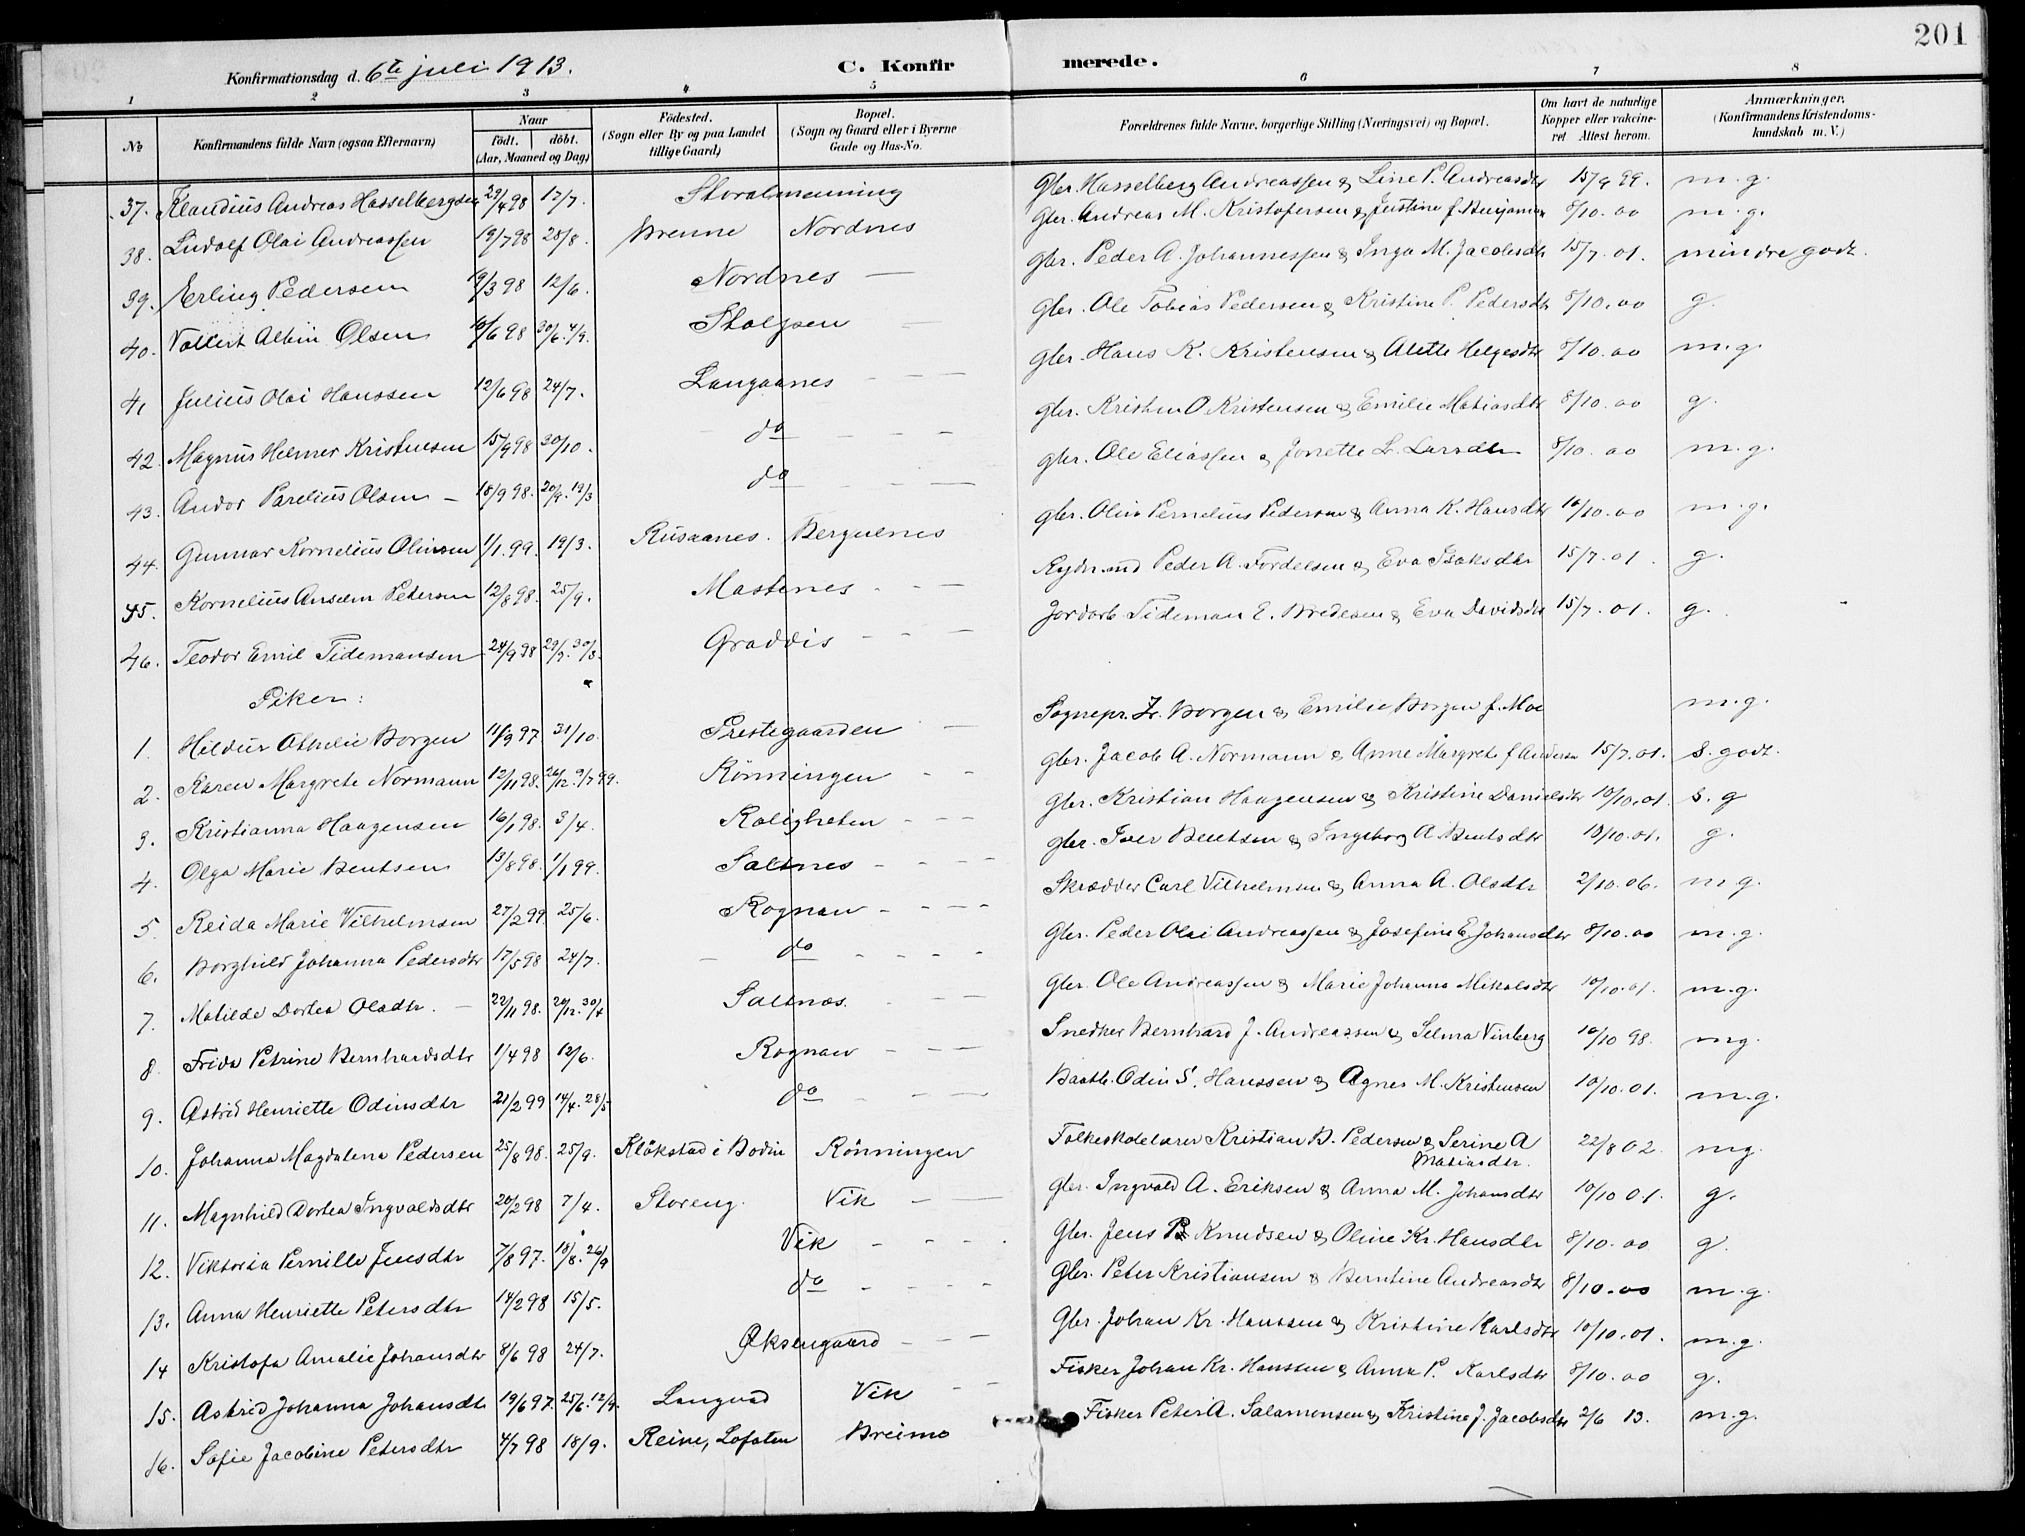 201
Konfirmationsdag d. 6te juli 1913. C. Konfirmerede.
1 2 3 4 5 6 7 8
№ Konfirmandens fulde Navn (ogsaa Efternavn) Naar födt. döbt. (Aar, Maaned og Dag) Födested. (Sogn eller By og paa Landet tillige Gaard) Bopæl. (Sogn og Gaard eller i Byerne Gade og Hus-No. Forældrenes fulde Navne, borgerlige Stilling (Næringsvei) og Bopæl. Om havt de naturlige Kopper eller vaccineret Attest herom. Anmærkninger. (Konfirmandens Kristendomskundskab m. V.)
37. Klaudius Andreas Hasselbergsen 29/4 98 17/7. Storalmenning Gbr. Hasselberg Andreassen & Line P. Andreasdtr 15/9 99. m.g.
38. Ludolf Olai Andreassen 19/7 98 28/8. Brenne Nordnes Gbr. Andreas M. Kristofersen & Justine f. Benjamin 8/10.00 m.g.
39. Erling Pedersen 19/3 98 12/6. Nordnes — Gbr. Peder A. Johannessen & Inga M. Jacobsdtr 15/7.01. mindre godt.
40. Volkert Albin Olsen 10/6 98 30/6. 4/9. Stolpen — Gbr. Ole Tobias Pedersen & Kristine P. Pedersdtr 8/10.00 g.
41 Julius Olai Hanssen 12/6 98 24/7. Langaanes - - - Gbr. Hans K. Kristensen & Alette Helgesdtr 8/10.00 m.g.
42. Magnus Helmer Kristensen 15/9 98 30/10. do - - - Gbr. Kristen O Kristensen & Emilie Matiasdtr 8/10.00 g.
43. Andor Parelius Olsen - 18/9 98. 20/9. 19/3 do - - - Gbr. Ole Eliassen & Jonette L. Larsdtr 8/10.00 m.g.
44. Gunnar Kornelius Olinsen 1/1.99. 19/3. Rusaanes. Berguenes Gbr. Olin Pernelius Pedersen & Anna K. Hansdtr 10/10.00 m.g.
45. Kornelius Anselm Pedersen 12/8 98. 25/9. Mastenes - - Rydn.md Peder A. Fordelsen & Eva Isaksdtr 15/7.01. g.
46. Teodor Emil Tidemansen 24/9 98 Graddis - - - Jordarb. Tideman E. Bredesen & Eva Davidsdtr 15/7.01. g.
Piker:
1. Hildur Othelie Borgen 11/9 97 31/10. Prestegaarden - — Sognepr. Borgen & Emilie Borgen f. Moe m.g.
2. Karen Margrete Normann 12/11 98. 26/12. 9/7 99. Rönningen - - Gbr. Jacob A. Normann & Anne Margrete f Andersen 15/7.01. s. godt.
3. Kristianna Haagensen 16/1 98. 3/4. Roligheten - - - Gbr. Kristian Haagensen & Kristine Danielsdtr 10/10.01. s. g
4. Olga Marie Bentsen 13/8 98. 1/1 99. Saltnes - - - - Gbr. Iver Bentsen & Ingeborg A Bentsdtr 10/10.01. g.
5. Reida Marie Vilhelmsen 27/2 99 25/6. Rognan - - - - Skrædder Carl Vilhelmsen & Anna A. Olsdtr 2/10.06. m.g.
6. Borghild Johanna Pedersdtr 17/5 98 24/7. — do - - - - Gbr. Peder Olai Andreassen & Josefine E. Johansdtr 8/10.00 m.g.
7. Matilde Dortea Olsdtr. — 22/11 98. 20/12. 30/4 Saltnæs. - - - Gbr. Ole Andreassen & Marie Johanna Mikalsdtr 10/10.01. m.g.
8. Frida Petrine Bernhardsdtr 1/4 98 12/6. Rognan - - - Snedker Bernhard J. Andreassen & Selma Vinberg 10/10 98. mg.
9. Astrid Henriette Odinsdtr 21/2 99 14/4. 28/5 do - - - Baatb. Odin S. Hanssen & Agnes M. Kristensen 10/10.01. m.g.
10. Johanna Magdalena Pedersen 25/8 98. 25/9. Klökstad i Bodin Rönningen Folkeskolelærer Kristian B. Pedersen & Serine A Matiasdtr. 22/8 02 mg.
11. Magnhild Dortea Ingvaldsdtr 20/2 98 7/4. Storeng. Vik - — Gbr. Ingvald A. Eriksen & Anna M. Johansdtr 10/10 01. g.
12. Viktoria Pernille Jensdtr 7/8 97. 18/8. 26/9 Vik - - - Gbr. Jens Knudsen & Oline Kr. Hansdtr 8/10.00 g.
13. Anna Henriette Petersdtr 14/2 98 15/5. do - - - - Gbr. Peter Kristiansen & Berntine Andreasdtr 8/10.00 m.g.
14 Kristofa Amalie Johansdtr 8/6 98 24/7. Øksengaard - - - Gbr. Johan Kr. Hanssen & Kristine Karlsdtr 10/10.01. m.g.
15. Astrid Johanna Johansdtr 19/6 97. 25/6. 12/9. Langvad Vik - - Fisker Johan Kr. Hanssen & Anna P. Karlsdtr 8/10.00 g.
16. Sofie Jacobine Petersdtr 4/7 98 18/9. Reine, Lofoten Breimo Fisker Peter A. Salamonsen & Kristine J. Jacobsdtr 2/6 13. m.g.